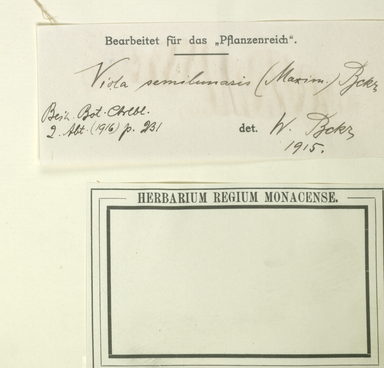 Bearbeitet für das „Pflanzenreich“.
Viola semilunaris (Maxim.) Bckr,
Beih. Bot. Ctrlbl.
2. Abt. (1916) p. 231
det. W. Bckr,
1915.
HERBARIUM REGIUM MONACENSE.